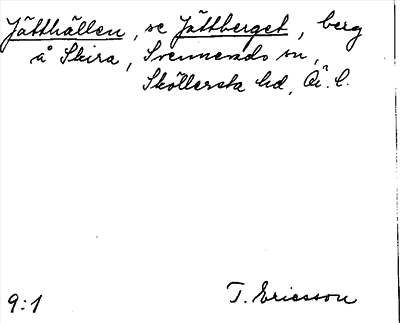 Jätthällen, se Jättberget, berg
å Skira, Svennevads sn,
Sköllersta hd, Ö. l.
T. Ericsson
9:1